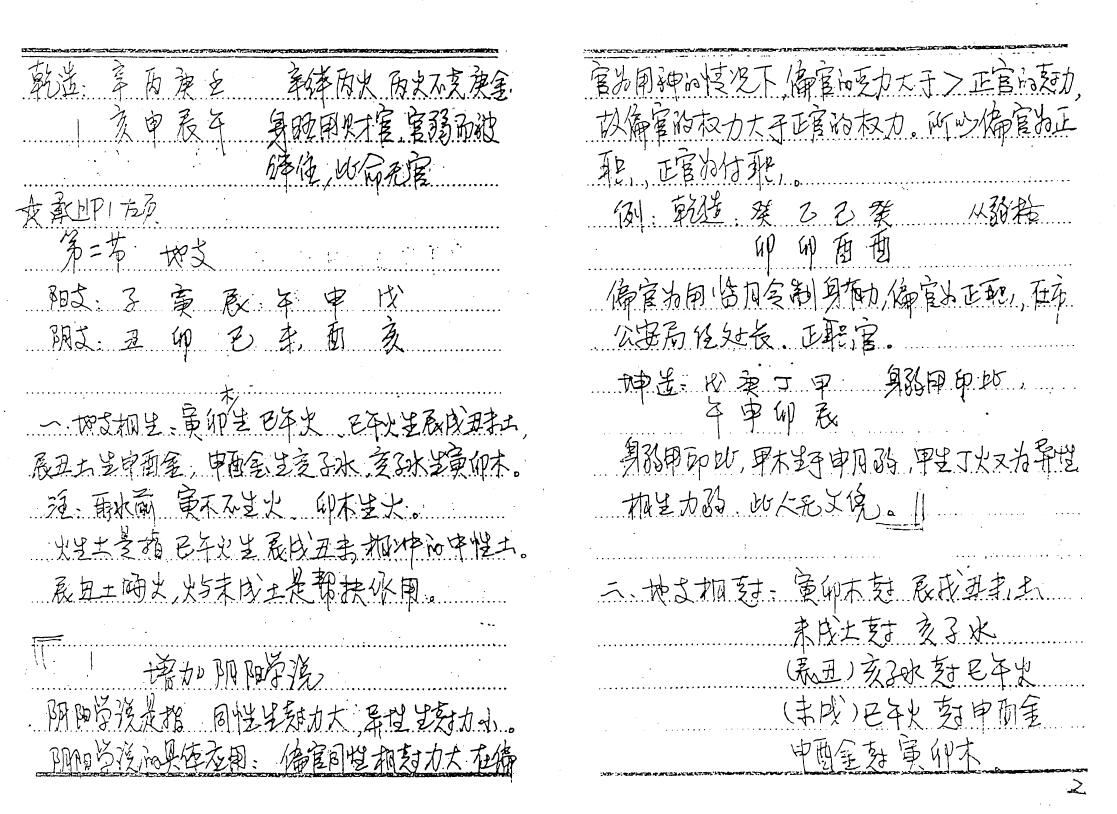 乾造：辛 丙 庚 壬　辛绊丙火，丙火不克庚金，
亥 申 辰 午　身旺用财官，官弱而被
绊住，此命无官
☆承过P1左页
第二节　地支
阳支：子 寅 辰 午 申 戌
阴支：丑 卯 巳 未 酉 亥
一、地支相生：寅卯木生巳午火、巳午火生辰戌丑未土，
辰丑土生申酉金，申酉金生亥子水，亥子水生寅卯木。
注：寅木不生火、卯木生火。
火生土是指巳午火生辰戌丑未，相冲的中性土。
辰丑土晦火，火与未戌土是帮扶作用。
增加阴阳学说
阴阳学说是指　同性生克力大，异性生克力小。
阴阳学说的具体应用：偏官同性相克力大，在偏
官为用神的情况下，偏官的克力大于＞正官的克力，
故偏官的权力大于正官的权力。所以偏官为正
职，正官为付职。
例：乾造：癸 乙 己 癸　从弱格
卯 卯 酉 酉
偏官为用，当月令制身有力，偏官为正职，在市
公安局任处长。正职官。
坤造：戊 庚 丁 甲　身弱用印比，
午 申 卯 辰
身弱用印比，甲木生于申月弱，甲生丁火又为异性
相生力弱，此人无文凭。
二、地支相克：寅卯木克 辰戌丑未土
未戌土克 亥子水
(辰丑)亥子水克巳午火
(未戌)巳午火克申酉金
申酉金克寅卯木。
2